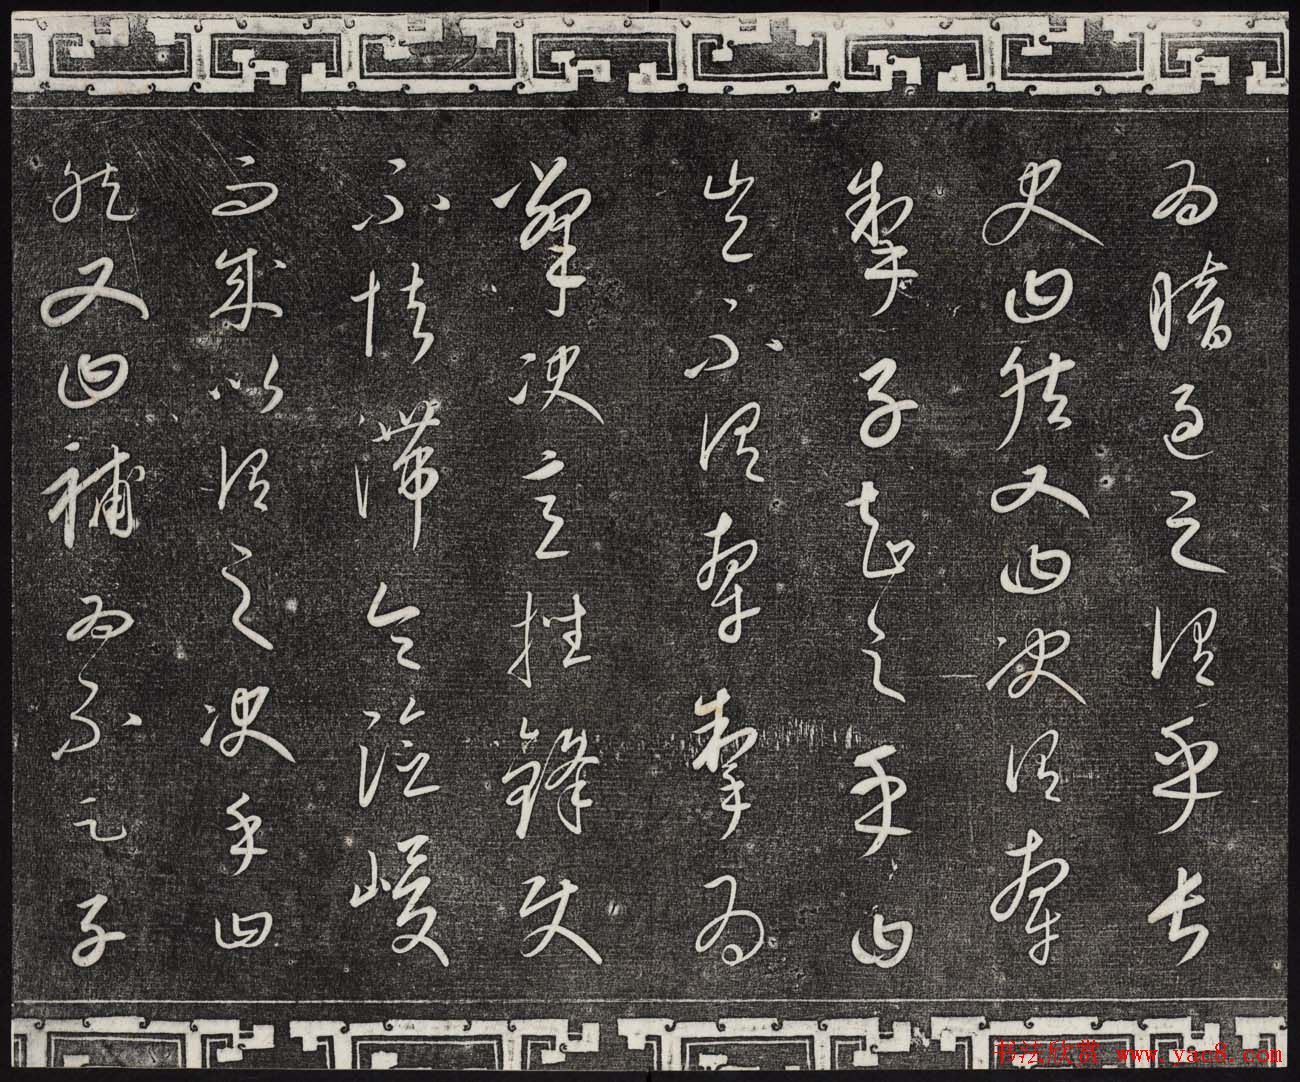 為暗過之謂乎長
史曰然又曰決謂牽
掣子知之乎曰
豈不謂牽掣為
撆決意挫鋒使
不怯滯令險峻
而成以謂之決乎曰
然又曰補為不足子
书法欣赏 www.yac8.com